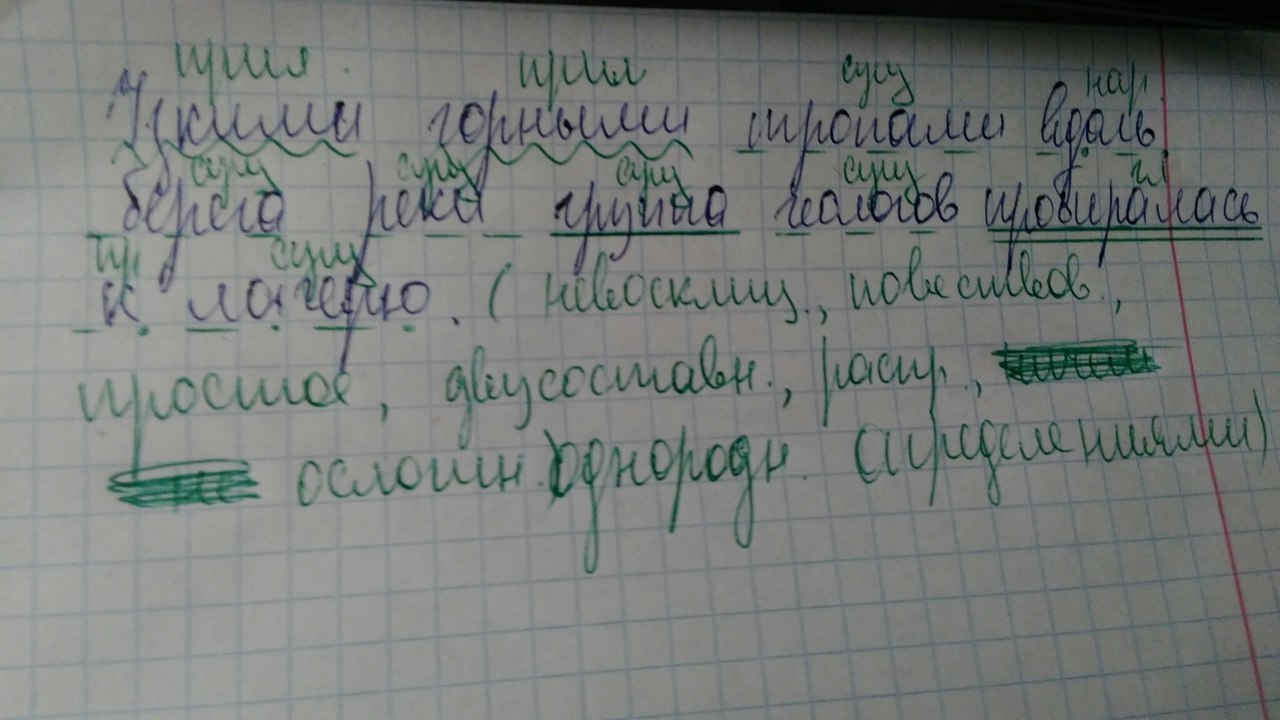 прил. прил сущ нар.
Узкими горными тропами вдоль
сущ сущ сущ сущ гл
берега реки группа геологов пробиралась
пр сущ
к лагерю. (невосклиц., повествов.,
простое, двусоставн., распр.,
осложн. однород. определениями)